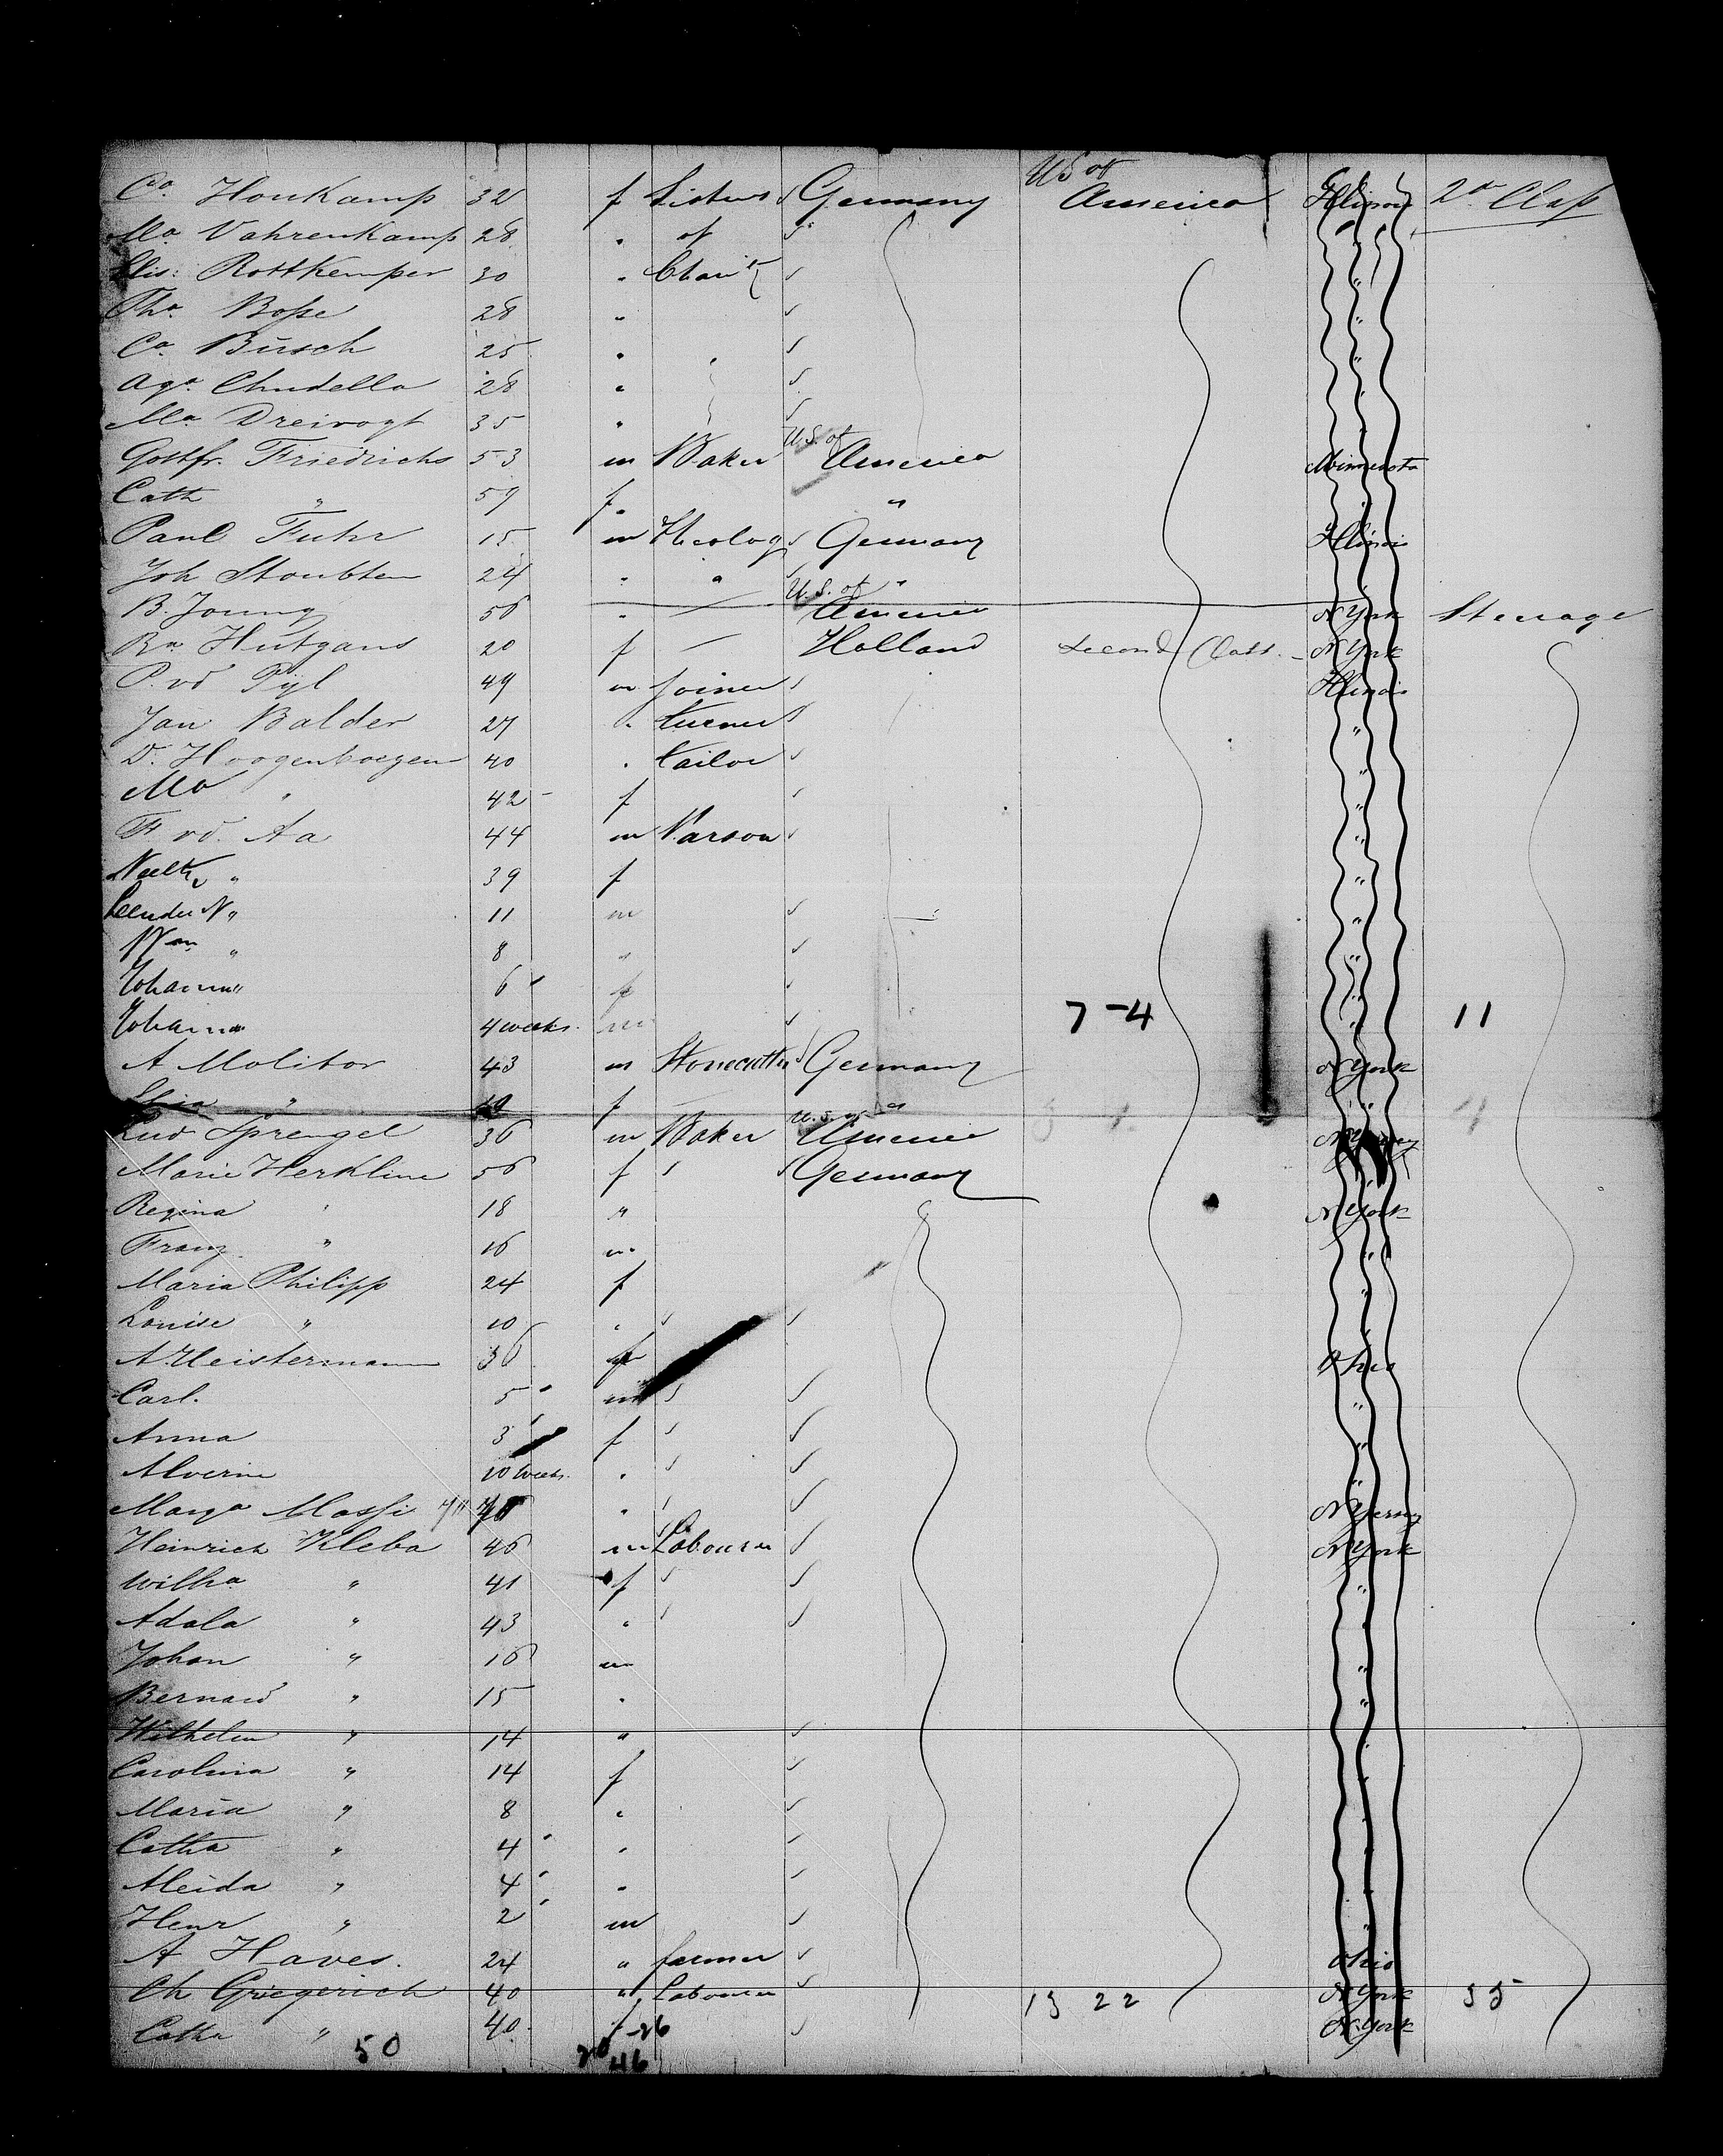 Ca. Honkamp 32 f Sisters Germany U S of America Illinois 2d Class
Ma Vahrenkamp 28 " of
Elis: Rottkemper 30 " Charity
Tha. Bosse 28 "
Ca. Büsch 25 "
Aga. Chudella 28 "
Ma Dreivogt 35 "
Gottfr. Friedrichs 53 m Baker U.S. of America Minnesota
Cath " 59 f "
Paul Fuhr 15 m Theolog Germany Illinois
Joh Stoubten 24 " " "
B. Joung 56 " U.S. of America N York Steerage
Ra Hutgans 20 f Holland Second Class. N York
P. vd Pijl 49 m Joiner Illinois
Jan Balder 27 " turner "
D. Hoogenboezen 40 " tailor "
Ma " 42 f "
F vd. Aa 44 m Parson "
Neeltje " 39 f "
Leendu N " 11 m "
Wm " 8 " "
Johanna " 6 f "
Johann " 4 weeks. m 7 - 4 " 11
A Molitor 43 m Stonecutter Germany N York
" f "
Lud Sprengel 36 m Baker U.S. of America
Marie Herkline 56 f Germany
Regina " 18 " N York
Franz " 16 m
Maria Philipp 24 f "
Louise " 10 "
A. Meistermann 36 f Ohio
Carl. 5 m "
Anna 3 f "
Alverine 10 weeks. " "
Marga Massi " N Jersey
Heinrich Kleba 46 m Labourer N York
Wilha " 41 f "
Adala " 43 " "
Johan " 16 m "
Bernard " 15 " "
Wilhelm " 14 "
Carolina " 14 f
Maria " 8 "
Catha " 4 "
Aleida " 4 "
Henr " 2 m "
A Haves. 24 " farmer Ohio
Ch Griegerich 40 " Labourer 13 22 N York 35
Catha " 40 f N. York
50 20 - 26
46